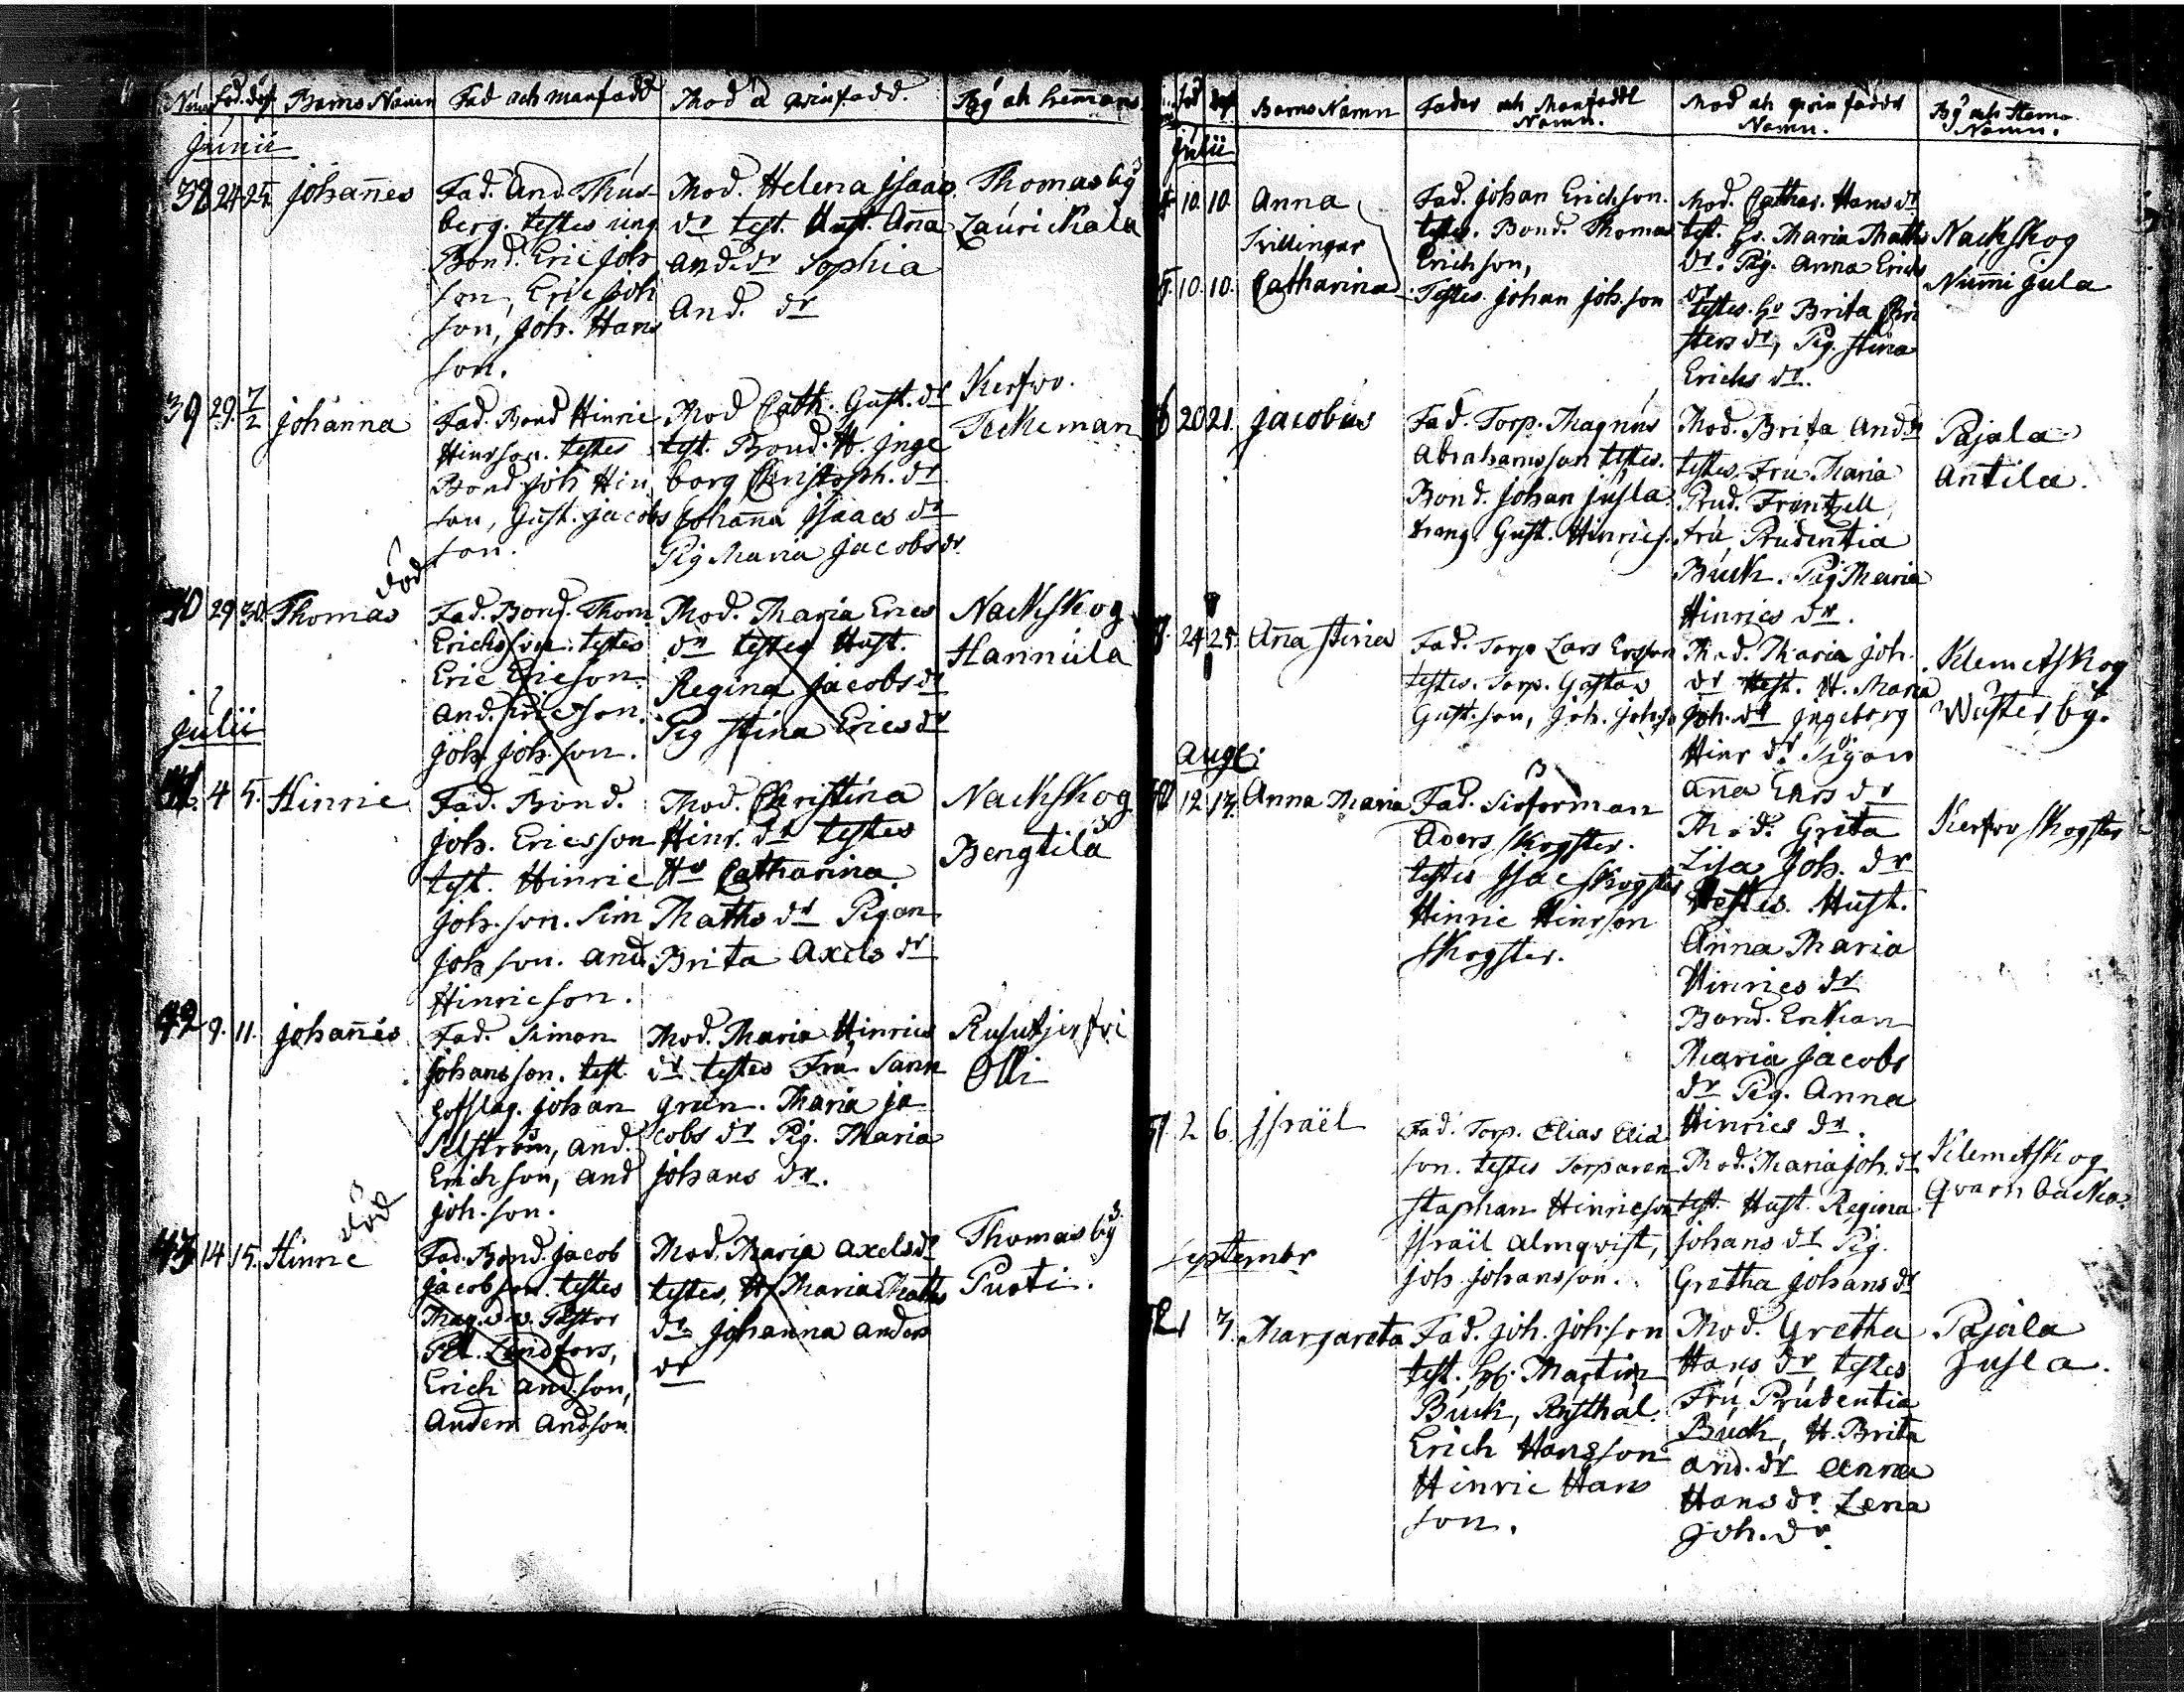 Num föd. döp. Barns Namn Fad och manfadd Mod å qvinfadd. By och hemmans
Junii
38 24 25. Johan̄es Fad. And. Thus- Mod. Helena Isaacs Thomasby
berg. testes ung dr test. Hust. An̄a Laurickala
Bond. Eric Joh And. dr Sophia
son, Eric Joh And. dr
son, Joh. Hans
son.
39 29. 7/2 Johanna Fad. Bond Hinric Mod Cath. Gust. dr Kerfvo.
Hinrson. testes test. Bond. H. Inge Teckeman
Bond Joh Hin borg Christoph. dr
son, Gust. Jacobs Johan̄a Isaacs dr
son. Pig Maria Jacobs dr
död
40 29 30. Thomas Fad. Bond. Thom Mod. Maria Erics Nackskog
Erichsson. testes dr testes Hust. Hannula
Eric Ericson. Regina Jacobs dr
And. Ericson. Pig Stina Erics dr
Joh. Joh. son.
Julii
41. 4 5. Hinric Fad. Bond. Mod. Christina Nackskog
Joh. Ericsson Hinr. dr testes Bengtila
test. Hinric Hr Catharina
Joh. son. Sim Maths dr Pigan
Joh son. And. Brita Axels dr
Hinricson.
42 9. 11. Johan̄es Fad. Simon Mod. Maria Hinrics Rusutjerfvi
Johansson. test dr testes Fru Sann Olli
hofslag. Johan gren. Maria Ja
Selström, And. cobs dr Pig. Maria
Erichson, And Johans dr.
Joh. son.
död
43 14 15. Hinric Fad. Bond. Jacob Mod. Maria Axels dr Thomasby
Jacobson. testes testes, H. Maria Maths Puoti.
Mag. v. Pastor dr Johanna Anders
Pet. Lindfors, dr
Erich Andson,
Anders Andson.
föd döp Barns Namn Fader och Manfaddl Mod och qvin faddl By och Hem̄a
Namn. Namn. Namn.
Julii
10. 10. Anna Fad. Johan Erichson. Mod. Cathar. Hans dr
Tvillingar testes. Bond. Thomas test. Hr. Maria Maths Nackskog
Erichson, dr. Pig. Anna Erichs Num̄ijula
10. 10. Catharina Testes. Johan Joh. son dr
testes. Hr Brita Chri
sters dr, Pig. Stina
Erichs dr.
20 21. Jacobus Fad. Torp. Magnus Mod. Brita And dr Pajala
Abrahamsson testes. testes. Fru Maria Antila.
Bond. Johan Jusla. Prud. Frentzell,
dreng. Gust. Hinrics. fru Prudentia
Buck. Pig Maria
Hinrics dr.
24 25. An̄a Stina Fad. Torp Lars Ersson Mod. Maria Joh. Klemetskog
testes. Torp. Gustav dr test. H. Maria Wästerby.
Gust. son, Joh. Johs Joh. dr Ingeborg
Hinr dr Pigan
An̄a Ers dr
Aug.
12 13. Anna Maria Fad. Mod. Grita Kerfvo Skogster
Aders Skogster. Lisa Joh. dr
testes Isac Skogster testes. Hust.
Hinric Hinrson Anna Maria
Skogster. Hinrics dr
Bond. Enkan
Maria Jacobs
dr Pig. Anna
Hinrics dr.
2 6. Israël Fad. Torp. Elias Elia Mod. Maria Joh. dr Klemetskog
son. testes Torparen test. Hust. Regina Qvarnbacka.
Staphan Hinricson Johans dr Pig.
Israël Almqvist, Gretha Johans dr
Joh. Johansson.
Septembr
1 3. Margareta Fad. Joh. Joh. son Mod. Gretha Pajala
test. Hr. Martin Hans dr, testes Jusla.
Buck, Rusthal. Fru, Prudentia
Erich Hansson Buck, H. Brita
Hinric Hans And. dr Anna
son. Hans dr Lena
Joh. dr.